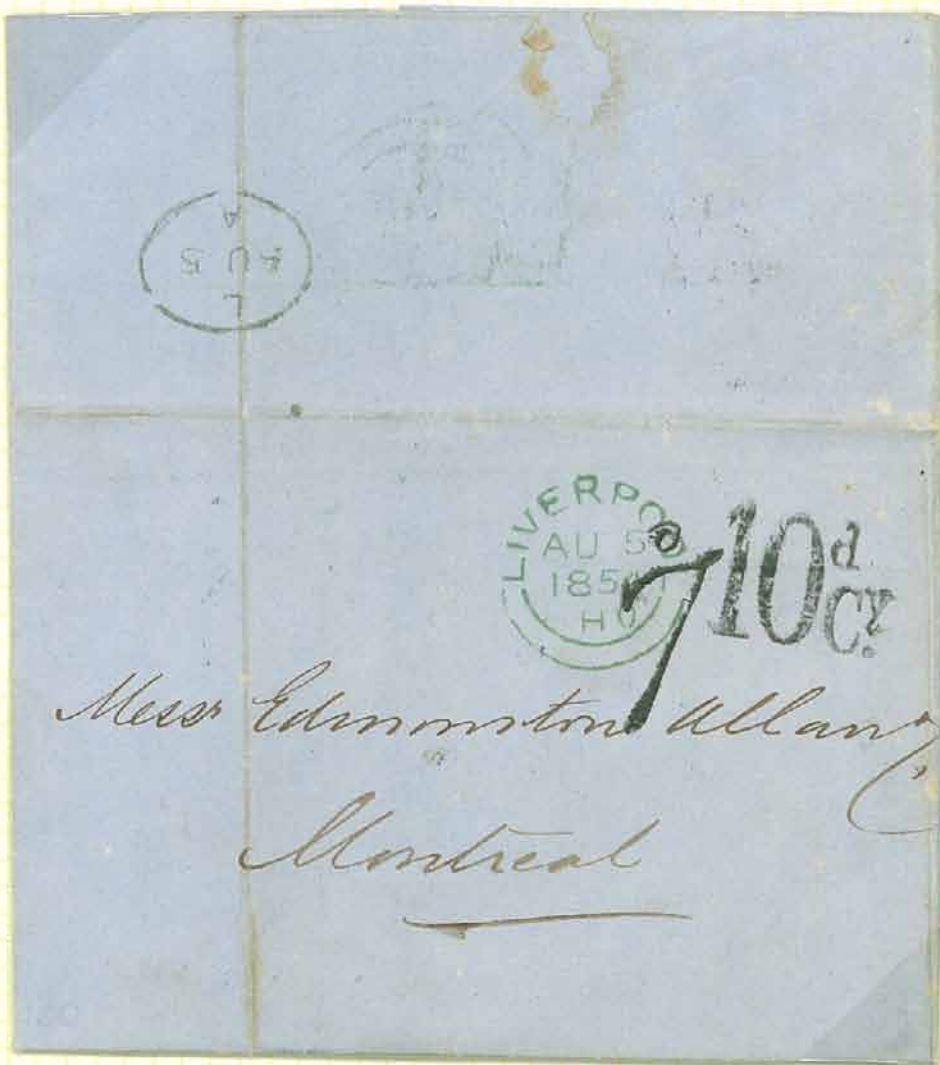 L
AU 5
A
LIVERPO
AU 5
185
H O
10d
Cy.
Messr Edmonston Allan &
C
Montreal